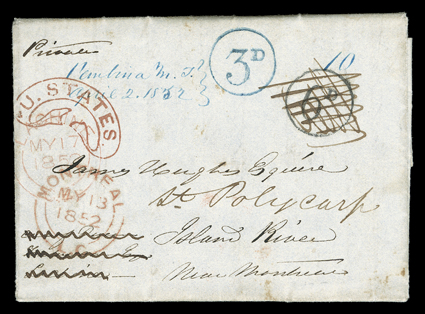 Private
Pembina M.T.
April 2. 1852
3D
10
6
U. STATES
MY 17
MONTREAL
MY 13
1852
James Hughes Esquire
St. Polycarp
Island River
Near Montreal